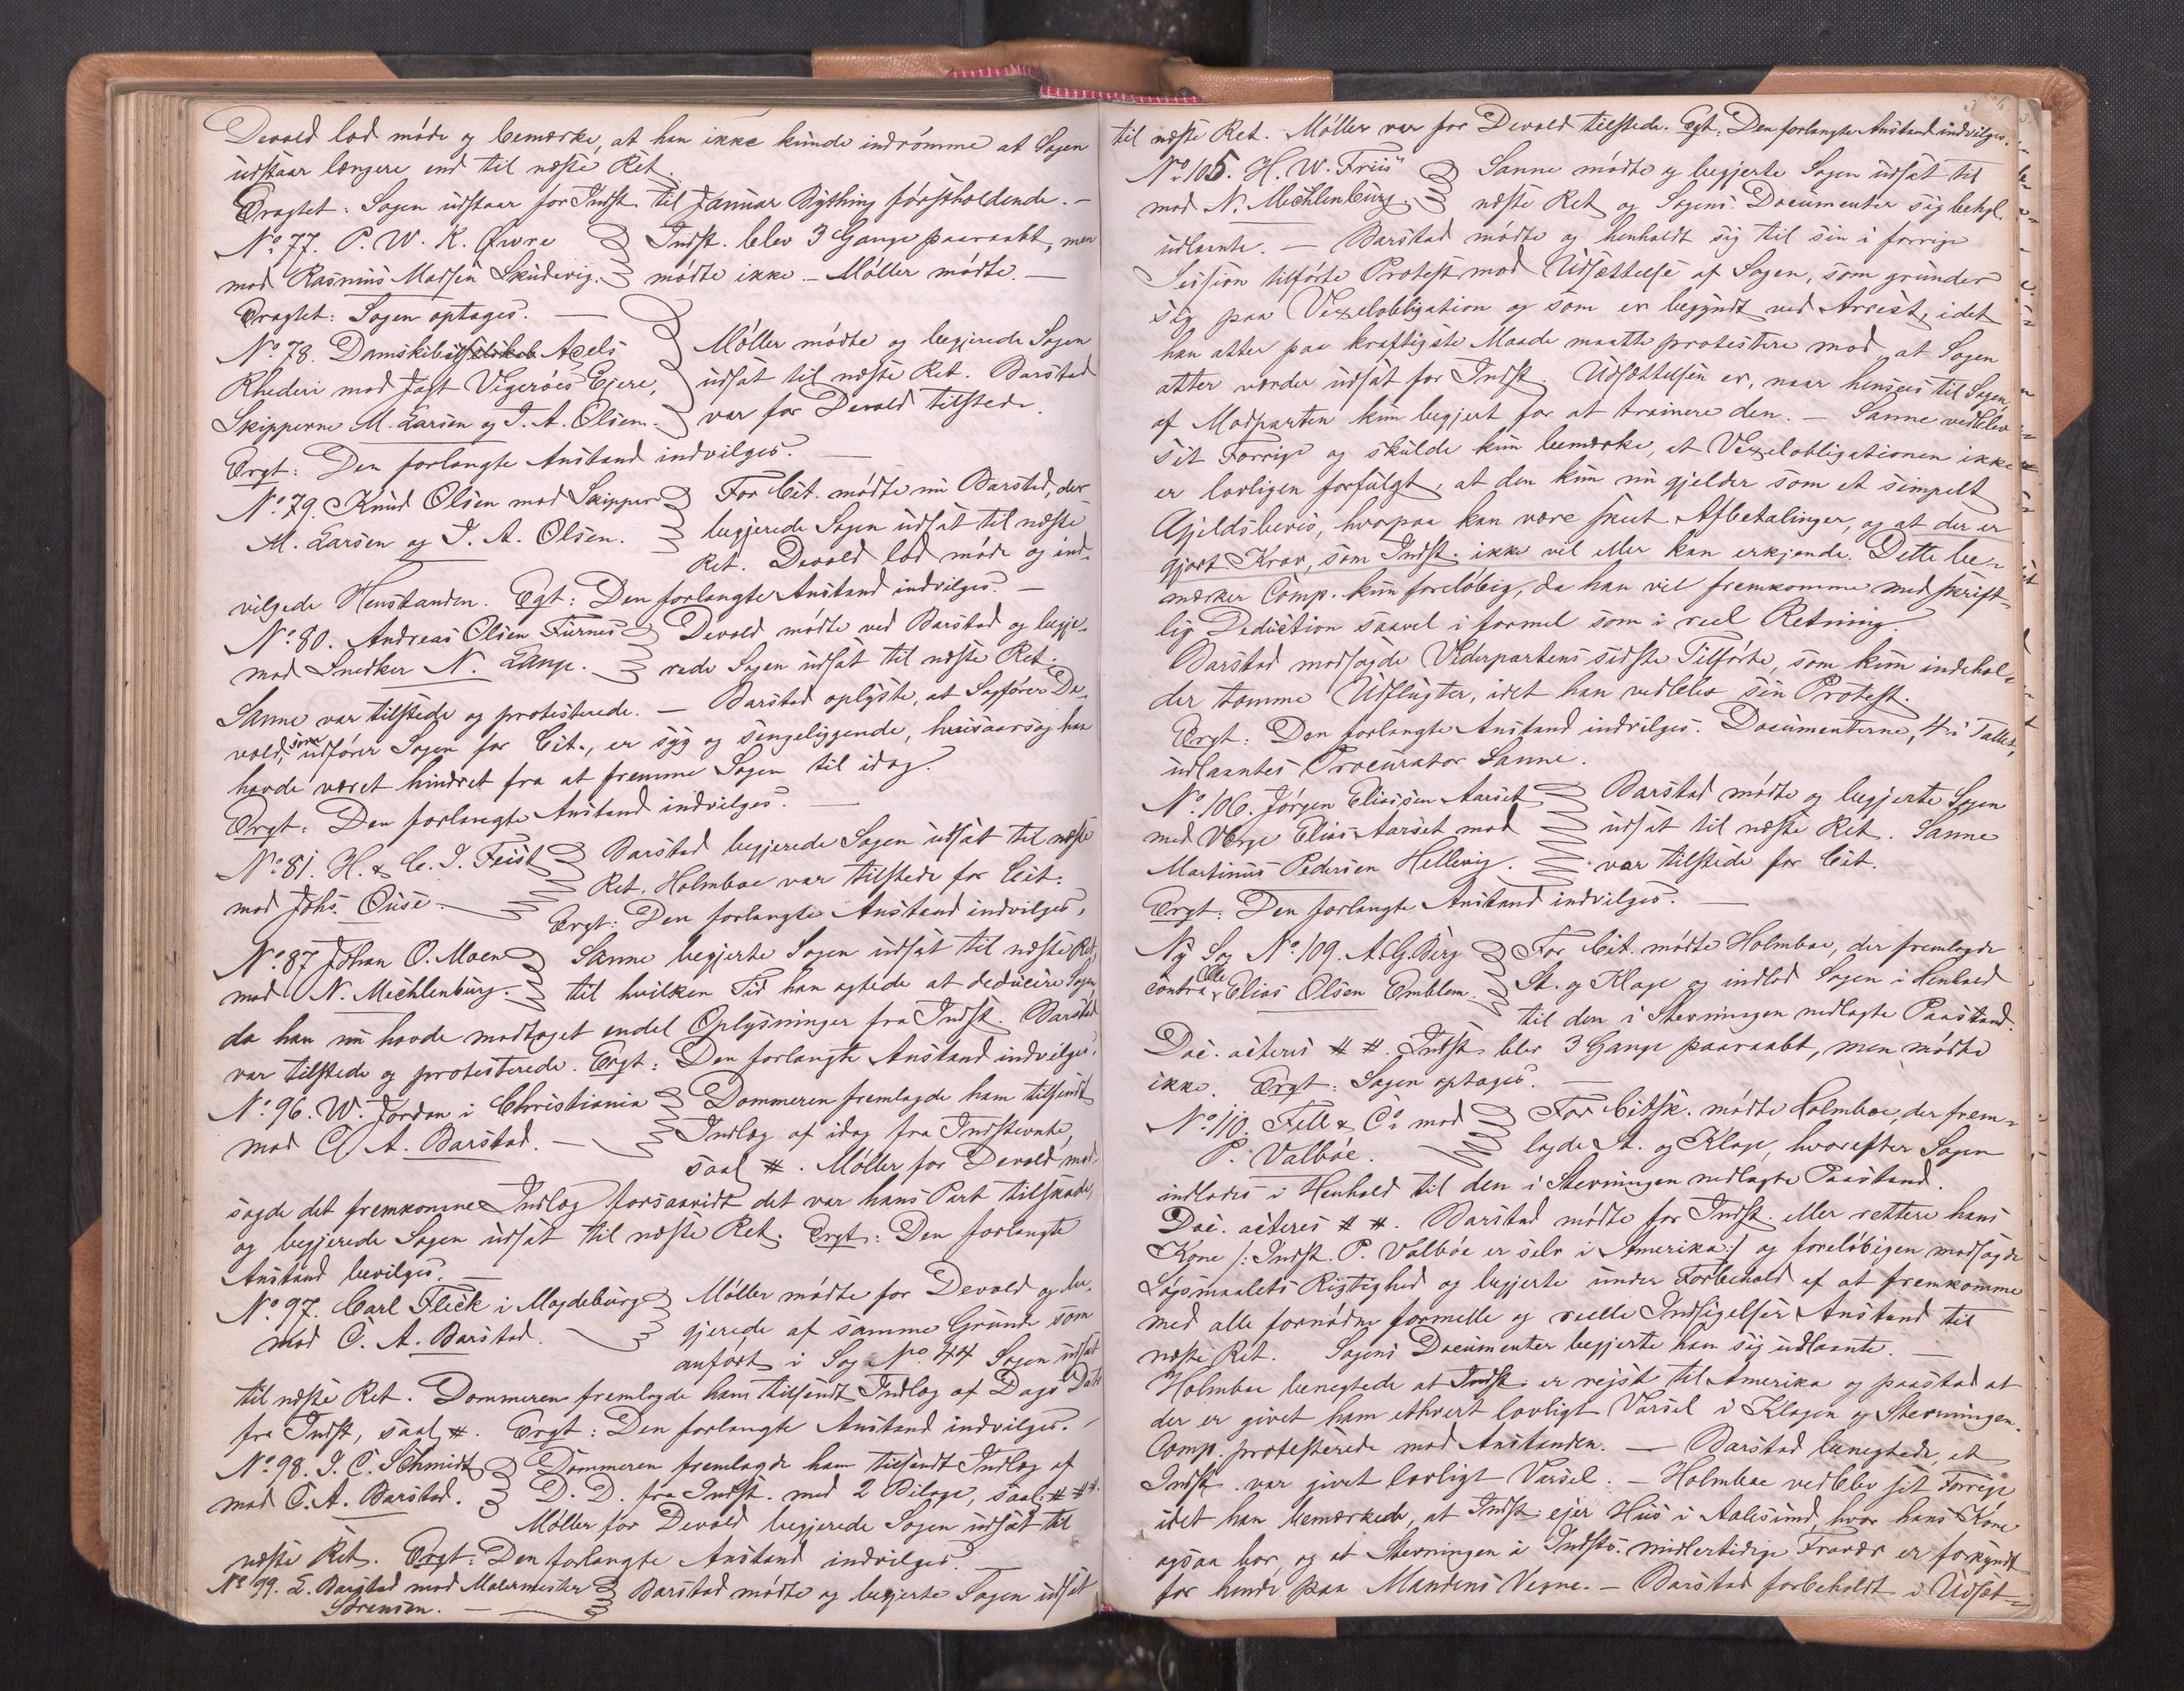 Devold lod møde og bemærke, at han ikke kunde indrømme at Sagen
udstaar længere end til næste Ret.
Eragtet: Sagen udstaar for Indst. til Januar Bything førstholdende. —
No 77. P. W. K. Øwre
mod Rasmus Madsen Skudevig.
Indst. blev 3 Gange paaraabt, men
mødte ikke. — Møller mødte. —
Eragtet: Sagen optages. —
No 78. Damskibsselskab Axels
Rhederi mod Jagt Vigerøes Ejere,
Skipperne M. Larsen og J. A. Olsen.
Møller mødte og begjerede Sagen
udsat til næste Ret. Barstad
var for Devold tilstede.
Eragt: Den forlangte Anstand indvilges. —
No 79. Knud Olsen mod Skipper
M. Larsen og J. A. Olsen.
For Cit. mødte nu Barstad, der
begjerede Sagen udsat til næste
Ret. Devold lod møde og ind-
vilgede Henstanden. Egt: Den forlangte Anstand indvilges. —
No 80. Andreas Olsen Furnes
mod Snedker N. Lange.
Devold mødte ved Barstad og begje-
rede Sagen udsat til næste Ret.
Sanne var tilstede og protesterede. — Barstad oplyste, at Sagfører De-
vold, som udfører Sagen for Cit., er syg og sengeliggende, hvisaarsag han
havde været hindret fra at fremme Sagen til idag.
Eragt: Den forlangte Anstand indvilges. —
No 81. H. & C. J. Feist
mod Johs. Ouse. —
Barstad begjerede Sagen udsat til næste
Ret. Holmboe var tilstede for Cit.
Eragt: Den forlangte Anstand indvilges,
No 87 Johan O. Moen
mod N. Mechlenburg.
Sanne begjerte Sagen udsat til næste Ret,
til hvilken Tid han agtede at deducire Sagen,
da han nu havde modtaget endel Oplysninger fra Indst. Barstad
var tilstede og protesterede. Eragt: Den forlangte Anstand indvilges.
No 96. W. Jordan i Christiania
mod C. A. Barstad. —
Dommeren fremlagde ham tilsendt
Indlæg af idag fra Indstevnte,
saal. #. Møller for Devold mod-
sagde det fremkomne Indlæg forsaavidt det var hans Part tilskade,
og begjerede Sagen udsat til næste Ret. Eragt: Den forlangte
Anstand bevilges. —
No 97. Carl Fleck i Magdeburg
mod C. A. Barstad. —
Møller mødte for Devold og be-
gjerede af samme Grunde som
anført i Sag No 44 Sagen udsat
til næste Ret. Dommeren fremlagde ham tilsendt Indlæg af Dags Dato
fra Indst, saal. #. Eragt: Den forlangte Anstand indvilges. —
No 98. J. C. Schmidt
mod C. A. Barstad.
Dommeren fremlagde ham tilsendt Indlæg af
D. D. fra Indst. med 2 Bilage, saal. # #.
Møller for Devold begjerede Sagen udsat til
næste Ret. Eragt: Den forlangte Anstand indvilges. —
No 99. L. Barstad mod Malermester
Sørensen. —
Barstad mødte og begjerte Sagen udsat
til næste Ret. Møller var for Devold tilstede. Egt: Den forlangte Anstand indvilges.
No 105. H. W. Friis
mod N. Mechlenburg.
Sanne mødte og begjerte Sagen udsat til
næste Ret og Sagens Documenter sig behgl.
udlaante. — Barstad mødte og henholdt sig til sin i forrige
Session tilførte Protest mod Udsættelse af Sagen, som grunder
sig paa Vexelobligation og som er begyndt ved Arrest, idet
han atter paa kraftigste Maade maatte protestere mod, at Sagen
atter vorder udsat for Indst. Udsættelsen er, naar hensees til Sagen,
af Modparten kun begjert for at trainere den. — Sanne vedblev
sit Forrige og skulde kun bemærke, at Vexelobligationen ikke
er lovligen forfulgt, at den kun nu gjelder som et simpelt
Gjeldsbevis, hvorpaa kan være skeet Afbetalinger, og at der er
gjort Krav, som Indst. ikke vil eller kan erkjende. Dette be-
mærker Comp. kun foreløbig, da han vil fremkomme med skrift-
lig Deduction saavel i formel som i reel Retning.
Barstad modsagde Vederpartens sidste Tilførte, som kun indehol-
der tomme Udflugter, idet han vedblev sin Protest.
Eragt: Den forlangte Anstand indvilges. Documenterne, 4 i Tallet,
udlaantes Procurator Sanne.
No 106. Jørgen Eliassen Aarset
med Verge Elias Aarset mod
Martinus Pedersen Hellevig.
Barstad mødte og begjerte Sagen
udsat til næste Ret. Sanne
var tilstede for Cit.
Eragt: Den forlangte Anstand indvilges. —
Ny Sag No 109. A. G. Berg
contra Ole Elias Olsen Emblem.
For Cit. mødte Holmboe, der fremlagde
St. og Klage og indlod Sagen i Henhold
til den i Stevningen nedlagte Paastand.
Doc. acteres # #. Indst. blev 3 Gange paaraabt, men mødte
ikke. Eragt: Sagen optages. —
No 110. Fett & Co mod
P. Valbøe.
For Citsk. mødte Holmboe, der frem-
lagde St. og Klage, hvorefter Sagen
indlodes i Henhold til den i Stevningen nedlagte Paastand.
Doc. acteres # #. Barstad mødte for Indst. eller rettere hans
Kone /: Indst. P. Valbøe er selv i Amerika :/ og foreløbigen modsagde
Søgsmaalets Rigtighed og begjerte under Forbehold af at fremkomme
med alle fornødne formelle og reelle Indsigelser Anstand til
næste Ret. Sagens Documenter begjerte han sig udlaante. —
Holmboe benegtede at Indst. er rejst til Amerika og paastod at
der er givet ham ethvert lovligt Varsel i Klagen og Stevningen.
Comp. protesterede mod Anstanden. — Barstad benegtede, at
Indst. var givet lovligt Varsel. — Holmboe vedblev sit Forrige
idet han bemærkede, at Indst. ejer Hus i Aalesund, hvor hans Kone
ogsaa bor, og at Stevningen i Indsts. midlertidige Fravær er forkyndt
for hende paa Mandens Vegne. — Barstad forbeholdt i Udsæt-